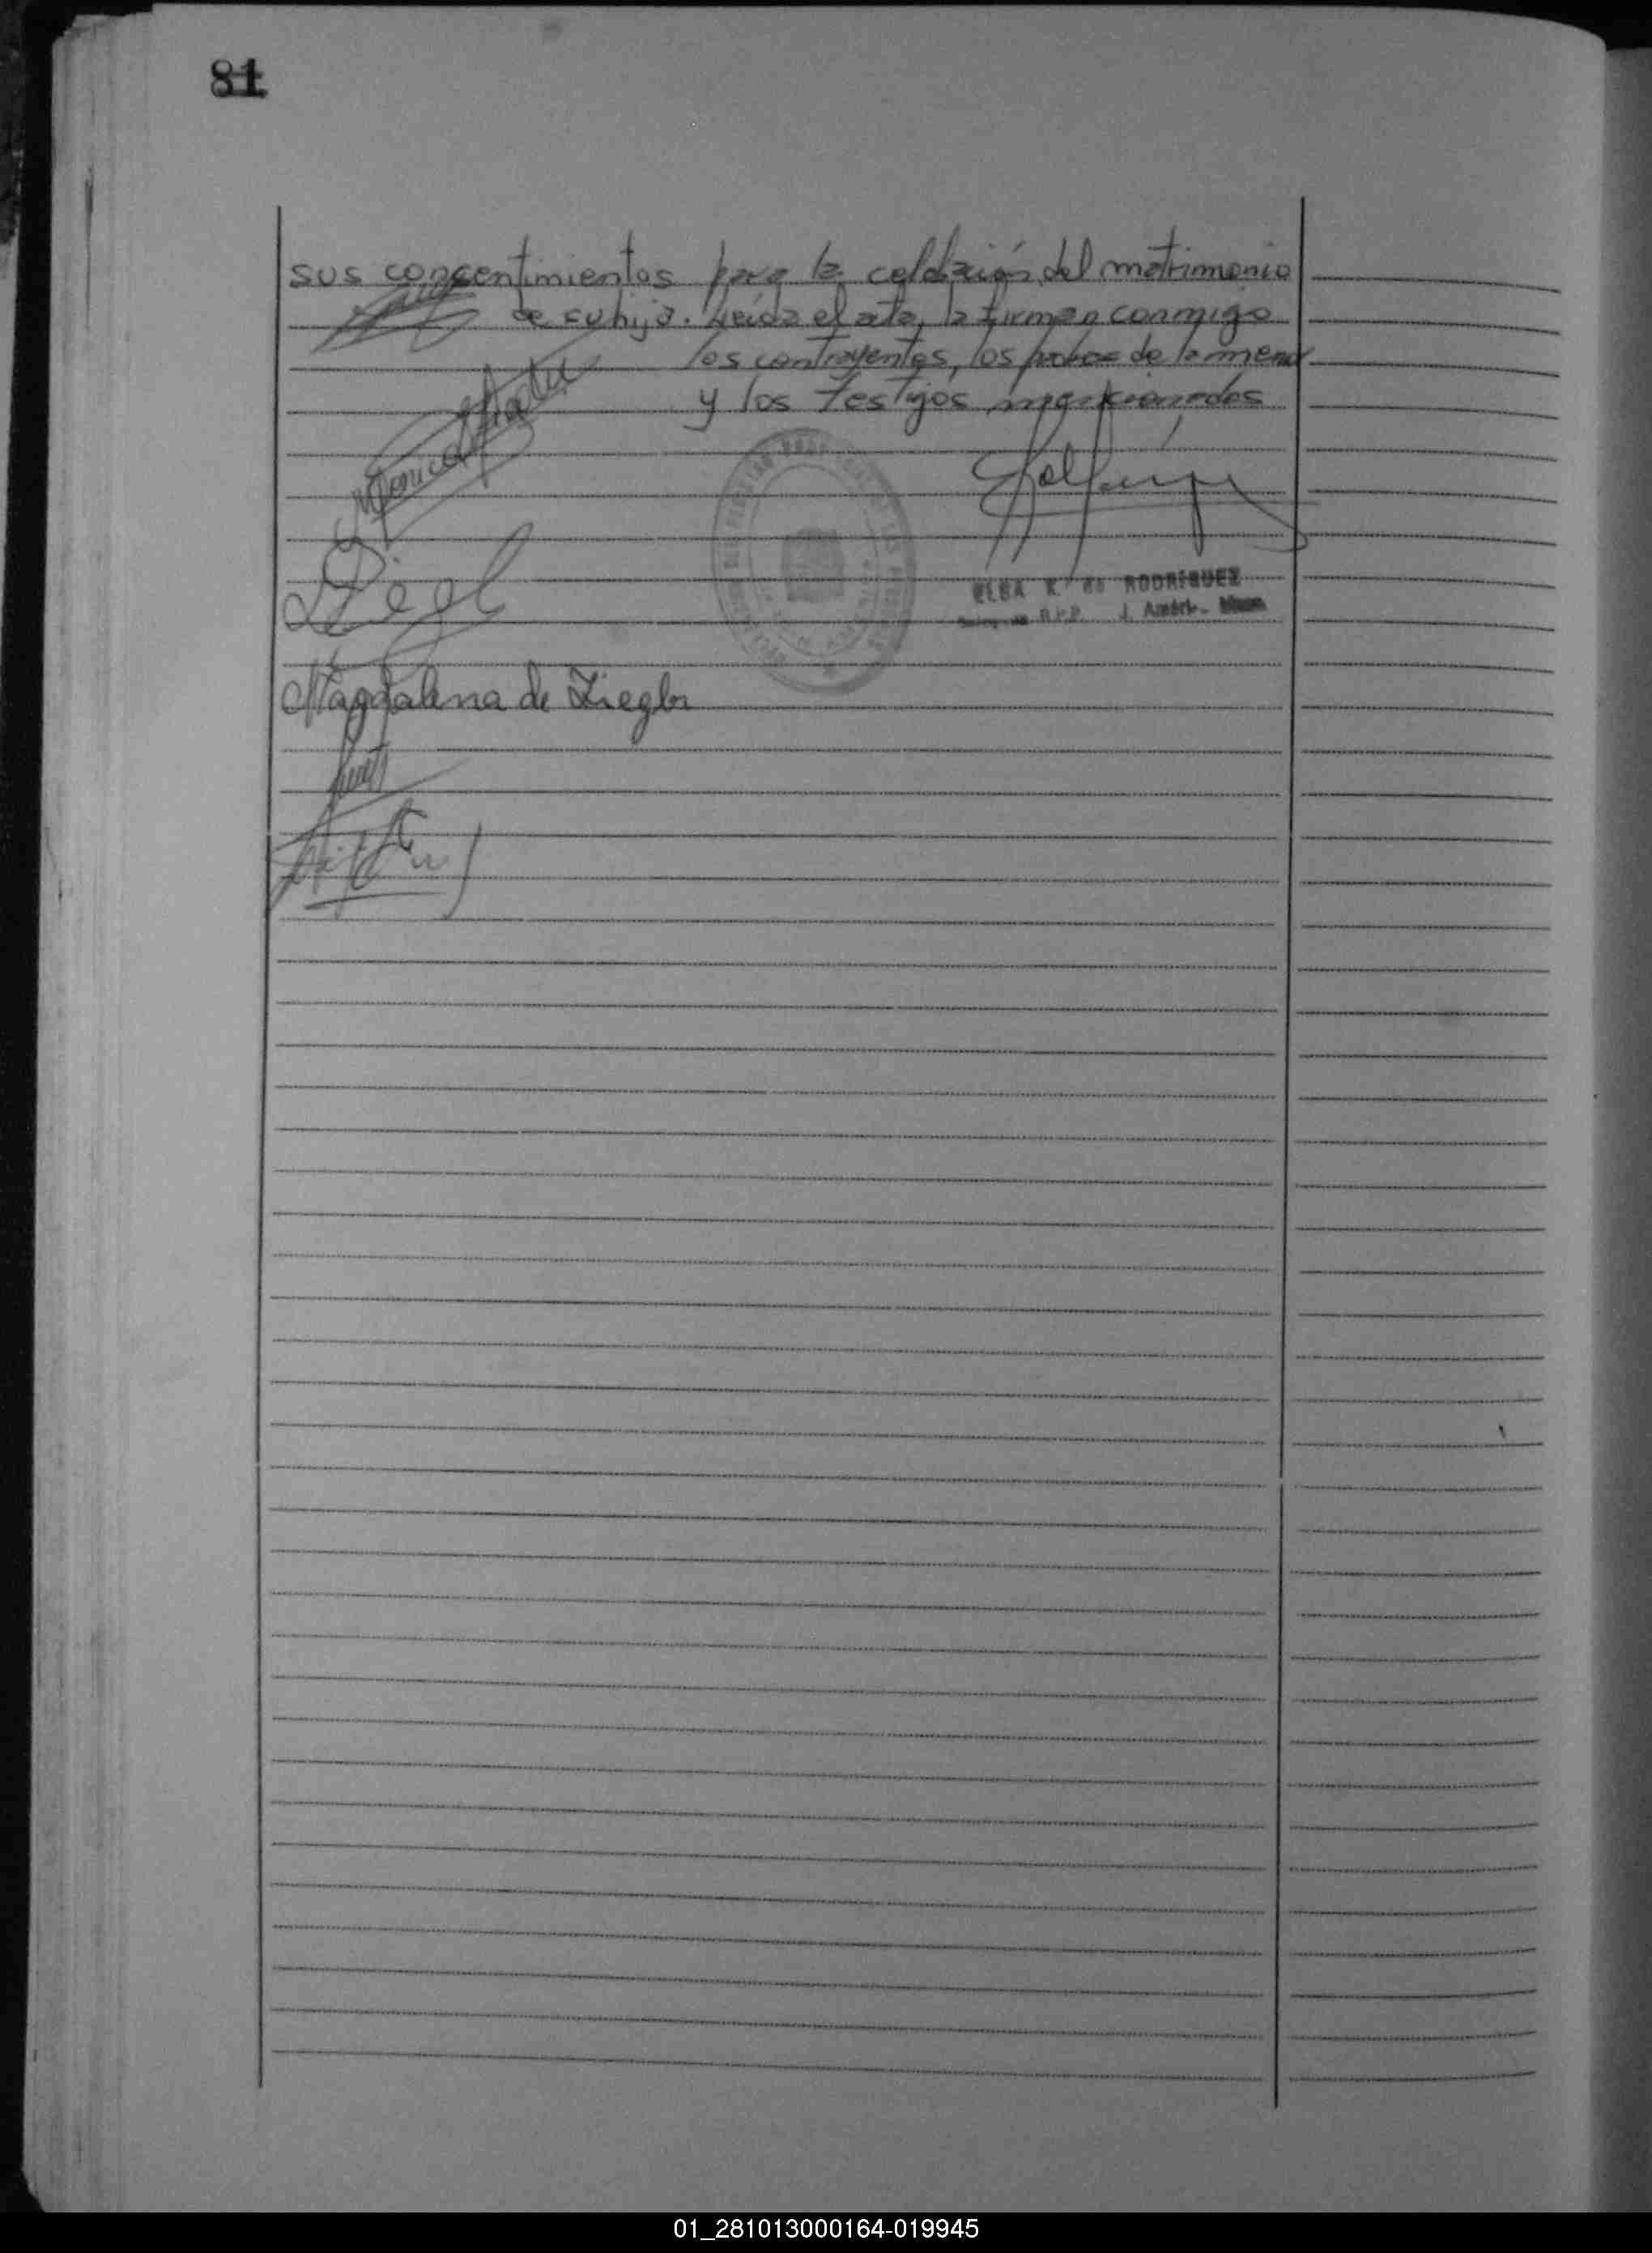 81
sus consentimientos para la celebración del matrimonio
de su hija. Leída el acta, la firman conmigo
los contrayentes, los padres de la menor
y los testigos mencionados
ELBA K. de RODRIGUEZ
R.P.P. J. Améri
Magdalena de Ziegler
01_281013000164-019945